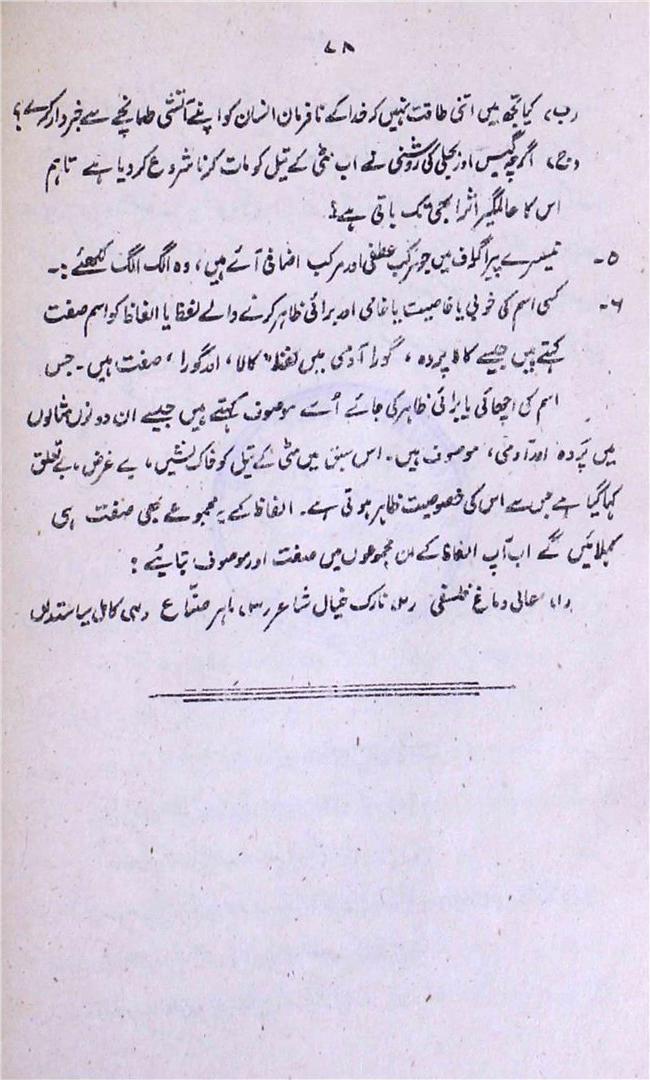 ۷۸
(ب) کیا تجھ میں اتنی طاقت نہیں کہ خدا کے نافرمان انسان کو اپنے آتشی طمانچے سے خبردار کرے؟
(ج) اگرچہ گیس اور بجلی کی روشنی نے اب مٹی کے تیل کو مات کرنا شروع کر دیا ہے تاہم
اس کا عالمگیر اثر ابھی تک باقی ہے؟
۵۔ تیسرے پیراگراف میں جو مرکب عطفی اور مرکب اضافی آئے ہیں، وہ الگ الگ لکھئے :۔
۶۔ کسی اسم کی خوبی یا خاصیت یا خامی اور برائی ظاہر کرنے والے لفظ یا الفاظ کو اسم صفت
کہتے ہیں جیسے کالا پردہ، گورا آدمی میں لفظ "کالا، اور گورا، صفت ہیں۔ جس
اسم کی اچھائی یا برائی ظاہر کی جائے اُسے موصوف کہتے ہیں جیسے ان دونوں مثالوں
میں پردہ اور آدمی، موصوف ہیں۔ اس سبق میں مٹی کے تیل کو خاک نشیں، بے غرض، بے تعلق
کہا گیا ہے جس سے اس کی خصوصیت ظاہر ہوتی ہے۔ الفاظ کے یہ مجموعے بھی صفت ہی
کہلائیں گے اب آپ الفاظ کے ان مجموعوں میں صفت اور موصوف بتایئے :
(۱) عالی دماغ فلسفی (۲) نازک خیال شاعر (۳) ماہر صنّاع (۴) کامل سیاستداں